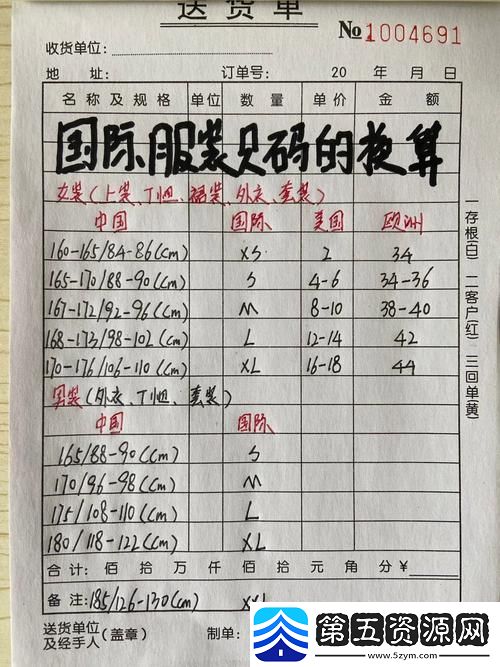 送货单
№1004691
收货单位:
地 址: 订单号: 20 年 月 日
名称及规格 单位 数量 单价 金额
国际服装尺码的换算
女装(上装、T恤、裙装、外衣、套装)
中国 国际 美国 欧洲
160-165/84-86(cm) XS 2 34
165-170/88-90(cm) S 4-6 34-36
167-172/92-96(cm) M 8-10 38-40
168-173/98-102(cm) L 12-14 42
170-176/106-110(cm) XL 16-18 44
男装(外衣、T恤、套装)
中国 国际
165/88-90(cm) S
170/96-98(cm) M
175/108-110(cm) L
180/118-122(cm) XL
合计: 佰 拾 万 仟 佰 拾 元 角 分 ¥
备注: 185/126-130(cm) XXL
送货单位及经手人(盖章) 制单:
一存根(白) 二客户(红) 三回单(黄)
第五资源网
www.5zym.com